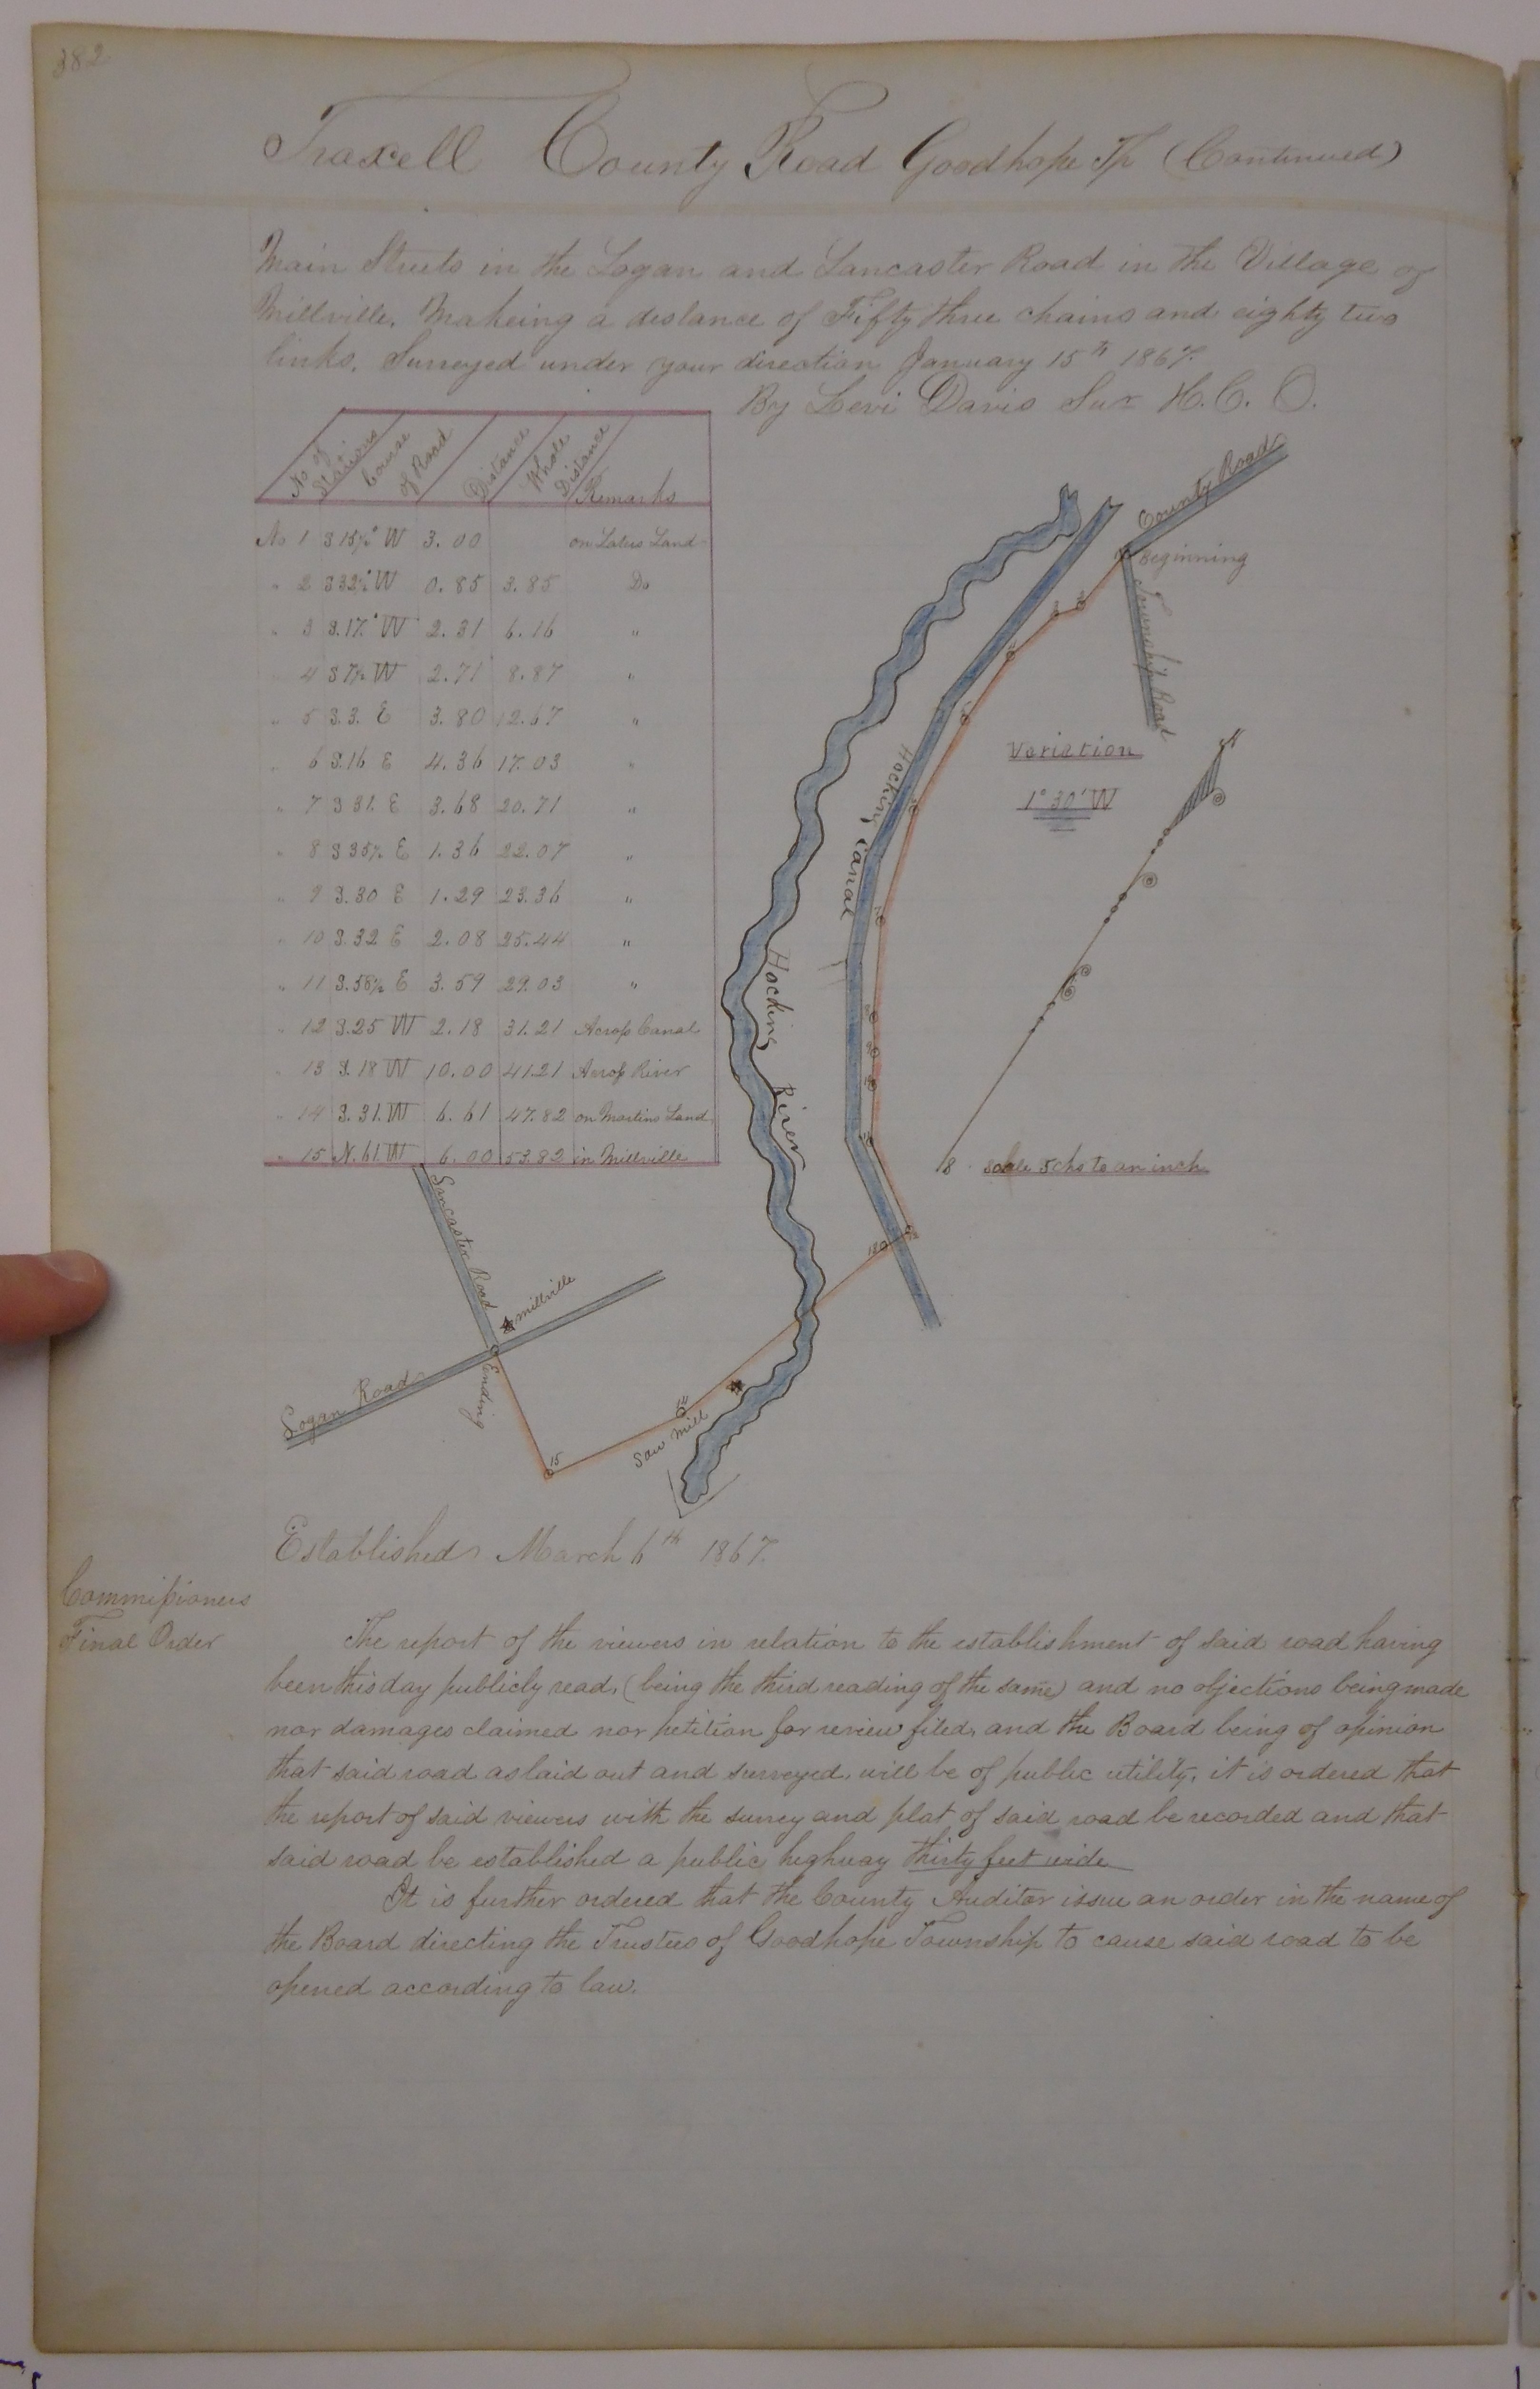 382
Traxell County Road Goodhope Tp (Continued)
Main Streets in the Logan and Lancaster Road in the Village of
Millville. Makeing a destance of Fifty three chains and eighty two
links. Surveyed under your direction January 15th 1867.
By Levi Davis Sur H. C. O.
No of Stations Course of Road Distance Whole Distance Remarks
No 1 S 15½° W 3.00 on Land
" 2 S 33½° W 0.85 3.85 Do
" 3 S.17.° W 2.31 6.16 "
4 S 7½ W 2.71 8.87 "
" 5 S.3. E 3.80 12.67 "
" 6 S.16 E 4.36 17.03 "
" 7 S 31. E 3.68 20.71 "
" 8 S 35½ E 1.36 22.07 "
" 9 S.30 E 1.29 23.36 "
" 10 S.32 E 2.08 25.44 "
" 11 S.58½ E 3.59 29.03 "
" 12 S.25 W 2.18 31.21 Across Canal
" 13 S.18 W 10.00 41.21 Across River
" 14 S.31.W 6.61 47.82 on Martins Land
" 15 N.61.W 6.00 53.82 in Millville
County Road
Beginning
Township Road
Variation
1° 30' W
N
Hocking Canal
Hocking River
S
Scale 5 chs to an inch
Lancaster Road
millville
Logan Road
Ending
13
14
15
Saw Mill
Established March 6th 1867.
Commissioners
Final Order
The report of the viewers in relation to the establishment of said road having
been this day publicly read, (being the third reading of the same) and no objections being made
nor damages claimed nor petition for review filed, and the Board being of opinion
that said road as laid out and surveyed, will be of public utility, it is ordered that
the report of said viewers with the survey and plat of said road be recorded and that
said road be established a public highway thirty feet wide
It is further ordered that the County Auditor issue an order in the name of
the Board directing the Trustees of Goodhope Township to cause said road to be
opened according to law.